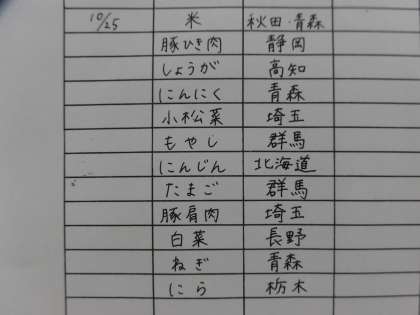 10/25 米 秋田・青森
豚ひき肉 静岡
しょうが 高知
にんにく 青森
小松菜 埼玉
もやし 群馬
にんじん 北海道
たまご 群馬
豚肩肉 埼玉
白菜 長野
ねぎ 青森
にら 栃木